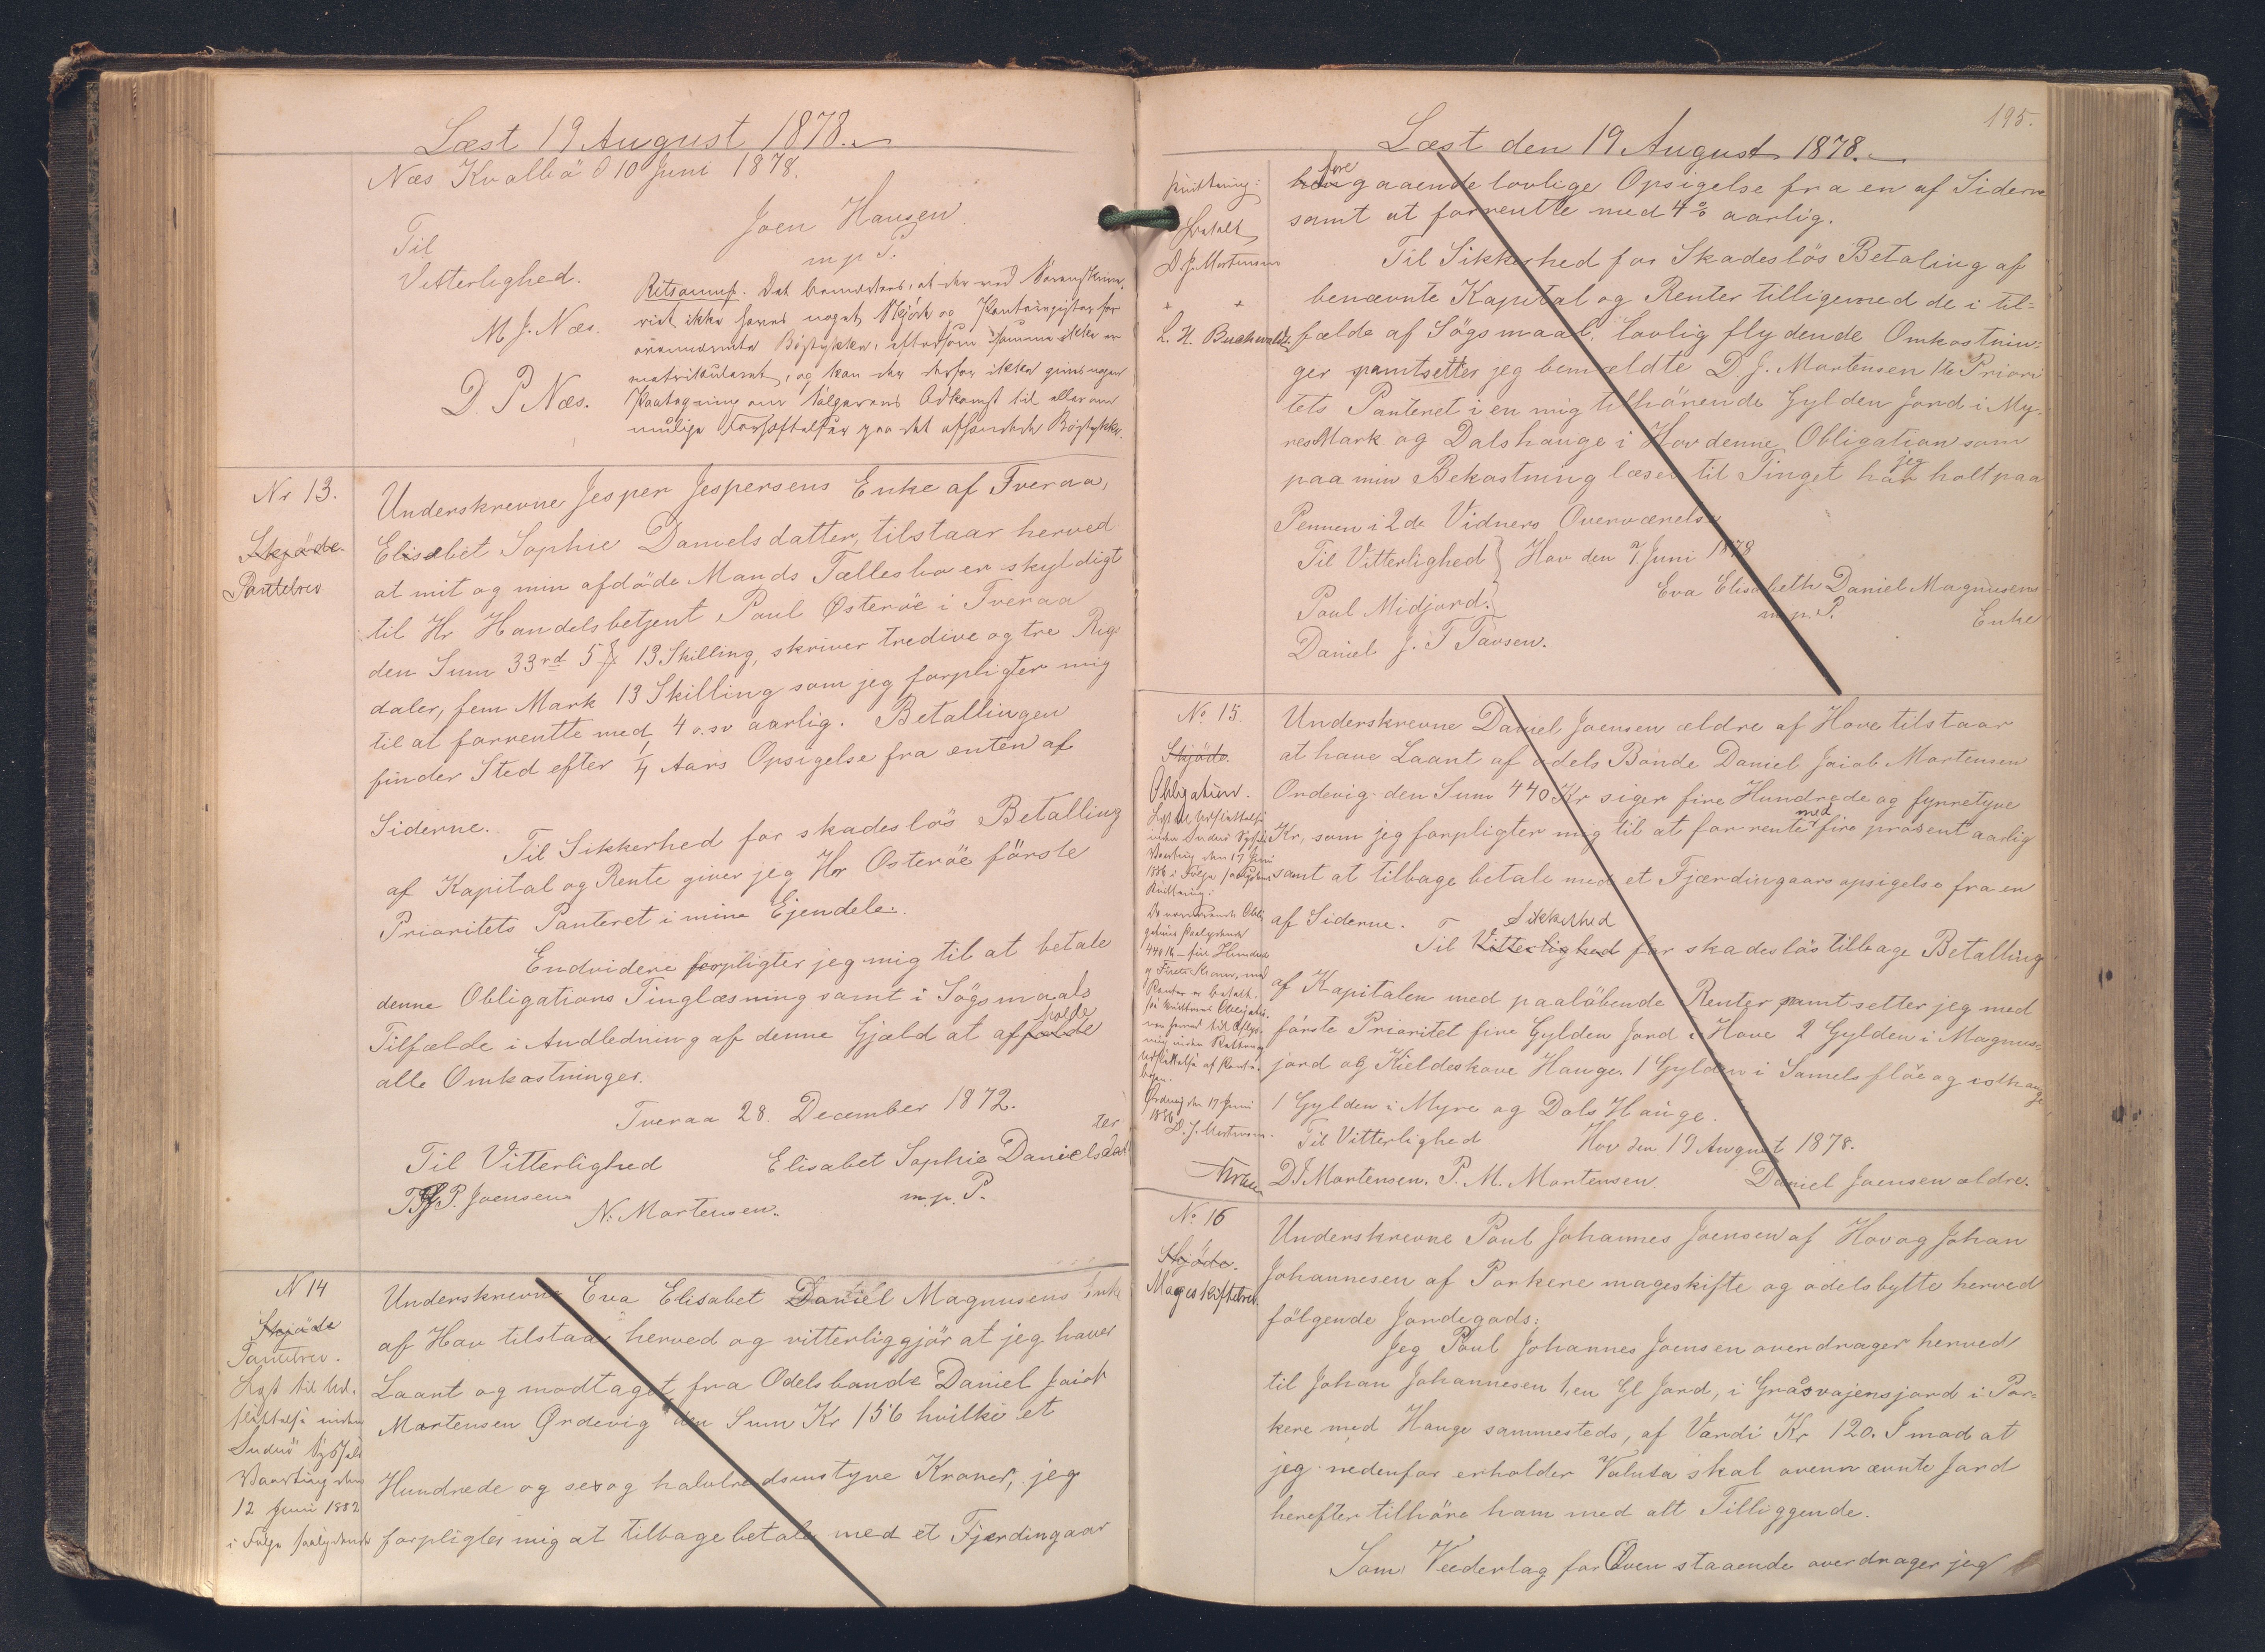 Læst 19 August 1878.
Næs Kvalbö d 10 Juni 1878.
Joen Hansen
m p P.
Til
Vitterlighed.
M J. Næs.
D. P Næs.
Retsanm. Det bemærkes, at der ved Sorenskrive-
riet ikke haves noget Skjöde og Panteregister for
ovennævnte Böstykke, eftersom samme ikke er
matrikuleret, og kan der derfor ikke gives nogen
Paategning om Sælgerens Adkomst til eller om
mulige Forhæftelser paa det afhændede Böstykke.
Nr 13.
Skjöde.
Pantebrev
Underskrevne Jesper Jespersens Enke af Tveraa,
Elisabet Sophie Danielsdatter, tilstaar herved
at mit og min afdöde Mands Fællesbo er skyldigt
til Hr Handelsbetjent Poul Østeröe i Tveraa
den Sum 33rd 5 ꝳ 13 Skilling, skriver tredive og tre Rigs
daler, fem Mark 13 Skilling som jeg forpligter mig
til at forrentte med 4 o.so aarlig. Betallingen
finder Sted efter 1/4 Aars Opsigelse fra enten af
Siderne.
Til Sikkerhed for skadeslös Betalling
af Kapital og Rente giver jeg Hr Osteröe förste
Prioritets Panteret i mine Ejendele.
Endvidere forpligter jeg mig til at betale
denne Obligations Tinglæsning samt i Sögsmaals
Tilfælde i Andledning af denne Gjæld at affolde holde
alle Omkostninger.
Tveraa 28. December 1872.
Til Vitterlighed
Elisabet Sophie Danielsdatter
J. P. Joensen
N. Mortensen.
m. p. P.
N 14
Skjöde
Pantebrev.
Lyst til Ud-
slettelse inden
Suderö Syssels
Vaarting den
12 Juni 1882
i Følge saalydende
Underskrevne Eva Elisabet Daniel Magnusens Enke
af Hov tilstaar herved og vitterliggjör at jeg haver
Laant og modtaget fra Odelsbonde Daniel Jaiob
Mortensen Ørdevig den Sum Kr 156 hvilke et
Hundrede og sex og halvtredsinstyve Kroner, jeg
forpligter mig at tilbagebetale med et Fjerdingaar
195.
Læst den 19 August 1878.
Kvittering:
Betalt
D J. Mortensen
+ +
L. H. Buchwaldt.
hen foregaaende lovlige Opsigelse fra en af Siderne
samt at forrentte med 4% aarlig.
Til Sikkerhed for Skadeslös Betaling af
benævnte Kapital og Renter tilligemed de i til-
fælde af Sögsmaal lovlig flydende Omkostnin-
ger pamtsetter jeg bemældte D. J. Mortensen 1te Priori
tets Panteret i en mig tilhörende Gylden Jord i My-
res Mark og Dalshauge i Hov denne Obligation som
paa min Bekostning læses til Tinget har jeg holt paa
Pennen i 2de Vidners Overværelse
Til Vitterlighed } Hov den 7 Juni 1878
Eva Elisabeth Daniel Magnusens
m. p. P. Enke
Poul Midjord.
Daniel J. F Tavsen.
No 15.
Skjöde.
Obligation.
Lyst til Udslettelse
inden Suderö Syssels
Vaarting den 17 Juni
1886 i Følge saalydende
Kvittering:
Da nærværende Obli
gation paalydende
440 Kr - fire Hundrede
og Firti Kroner, med
Renter er betalt,
Ørdevig den 17 Juni
1886
D. J. Mortensen.
Underskrevne Daniel Joensen ældre af Hove tilstaar
at have Laant af odels Bonde Daniel Jaiob Mortensen
Ordevig den Sum 440 Kr siger fire Hundrede og fyrretyve
Kr, som jeg forpligter mig til at forrente med fire prosent aarlig
samt at tilbage betale med et Fjærdingaars opsigelse fra en
af Siderne.
Til Vitterlighed Sikkerhed for skadeslös tilbage Betalling
af Kapitalen med paalöbende Renter pamtsetter jeg med
förste Prioritet fire Gylden Jord i Hove 2 Gylden i Magnus-
jord og Kieldeskove Hauge. 1 Gylden i Samelsflöe og hauge
1 Gylden i Myre og Dals Hauge.
Til Vitterlighed
Hov den 19 August 1878.
D J. Mortensen. P. M. Mortensen
Daniel Joensen ældre.
No 16
Skjöde.
Mageskiftebrev.
Underskrevne Poul Johannes Joensen af Hov og Johan
Johannesen af Porkere mageskifte og odelsbytte herved
fölgende Jordegods:
Jeg Poul Johannes Joensen overdrager herved
til Johan Johannesen 1, en Gl Jord, i Gråsvajensjord i Por-
kere med Hauge sammesteds, af Værdi Kr 120. Imod at
jeg nedenfor erholder Valuta skal ovennævnte Jord
herefter tilhöre ham med alt Tilliggende.
Som Veederlag for Oven staaende overdrager jeg